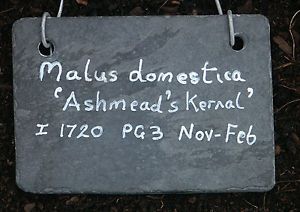 Malus domestica
'Ashmead's Kernal'
I 1720 PG3 Nov-Feb